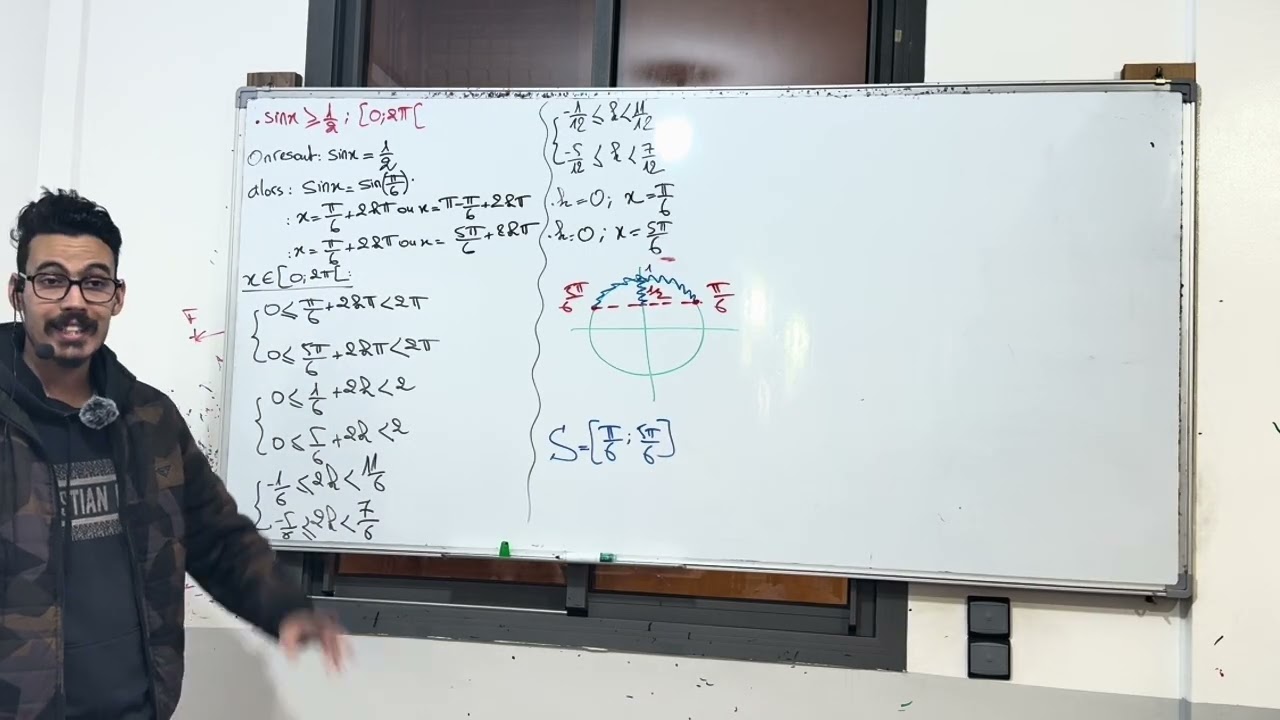 . sinx ≥ 1/2 ; [0;2π[
On resout : sinx = 1/2
alors : sinx = sin(π/6).
: x = π/6 + 2kπ ou x = π - π/6 + 2kπ
: x = π/6 + 2kπ ou x = 5π/6 + 2kπ
x ∈ [0;2π[ :
0 ≤ π/6 + 2kπ < 2π
0 ≤ 5π/6 + 2kπ < 2π
0 ≤ 1/6 + 2k < 2
0 ≤ 5/6 + 2k < 2
-1/6 ≤ 2k < 11/6
-5/6 ≤ 2k < 7/6
-1/12 ≤ k < 11/12
-5/12 ≤ k < 7/12
. k = 0 ; x = π/6
. k = 0 ; x = 5π/6
1
5π/6 1/2 π/6
S = [π/6 ; 5π/6]
F
STIAN